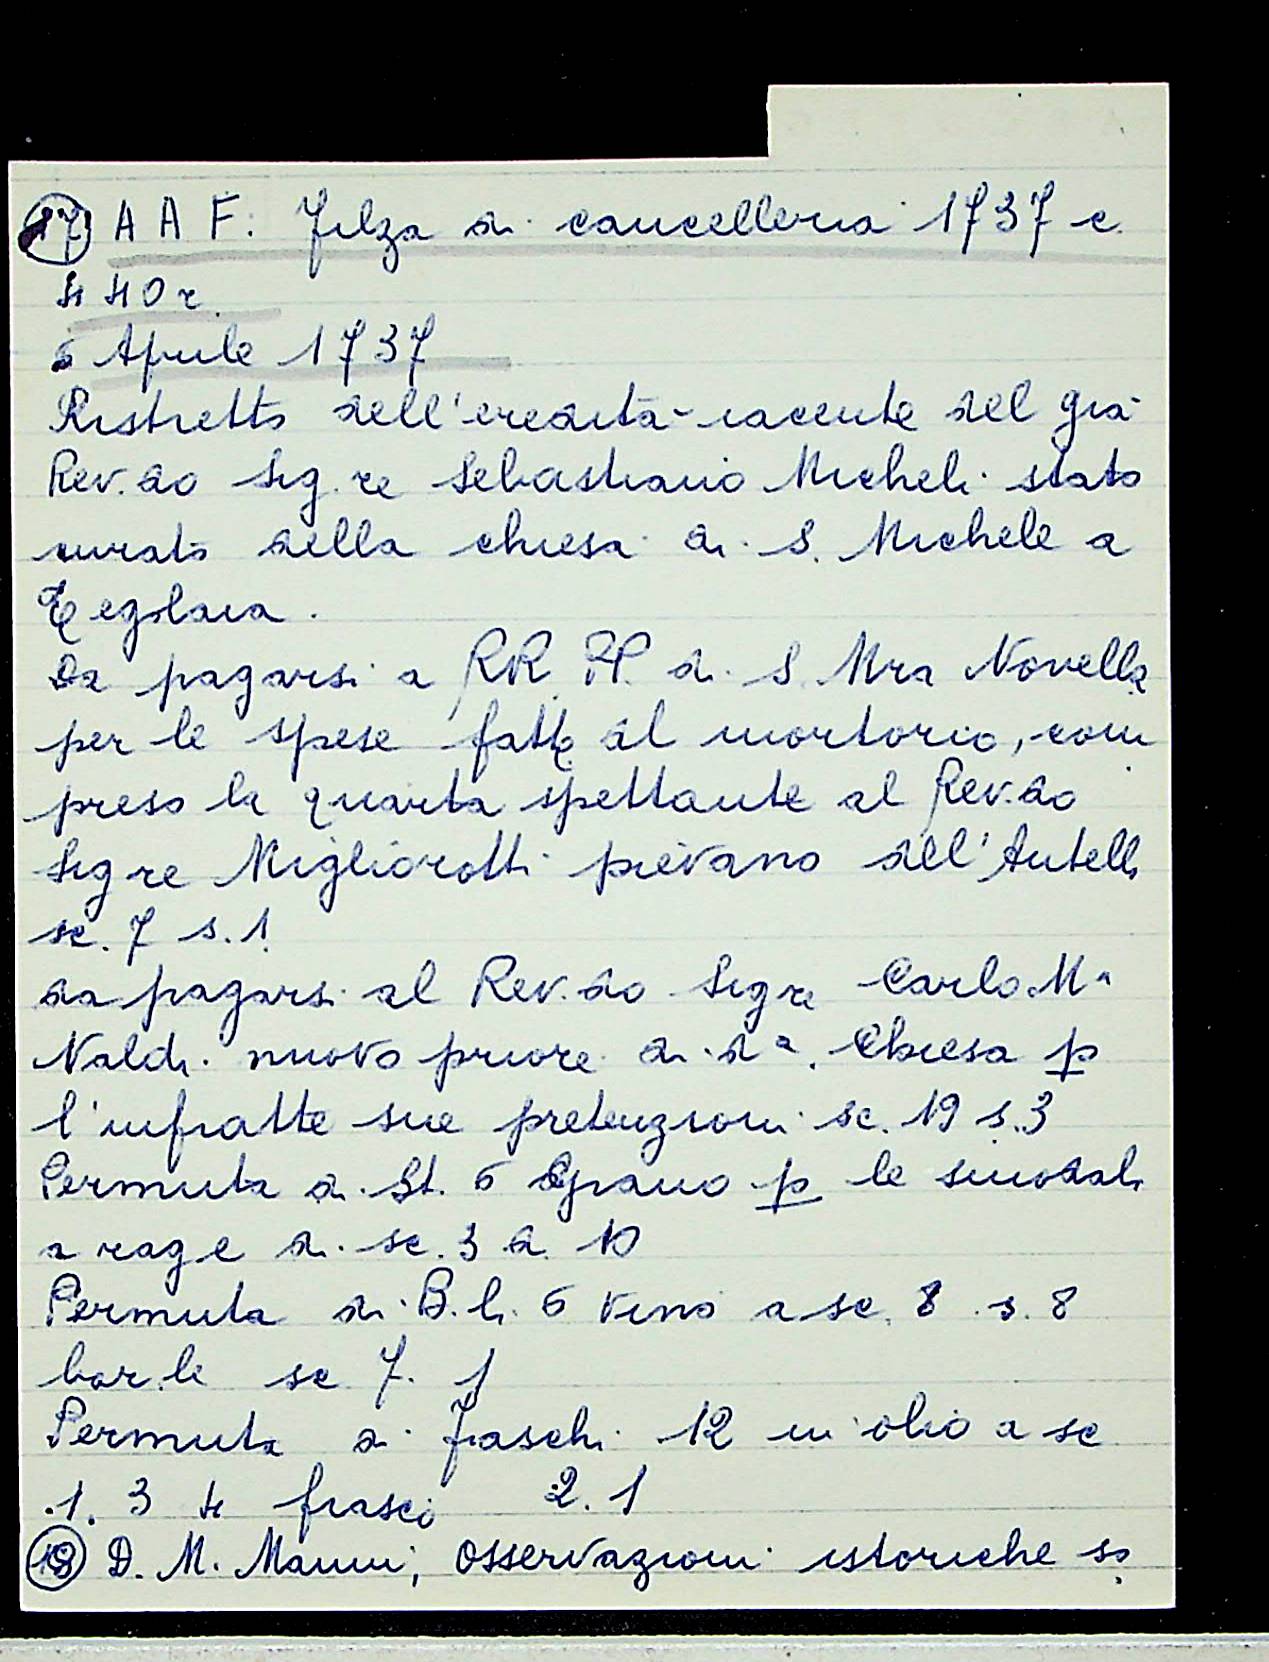 17 A A F. Filza di cancelleria 1737 c.
440 r.
6 Aprile 1737
Ristretto dell'eredità iacente del già
Rev.do Sig.re Sebastiano Micheli stato
curato della chiesa di S. Michele a
Tegolaia.
Da pagarsi a RR. PP. di S. Mra Novella
per le spese fatte al mortorio, com
preso la quarta spettante al Rev.do
Sigre Migliorotti pievano dell'Antella
sc. 7 s.1
da pagarsi al Rev.do Sigre Carlo Mª
Naldi nuovo priore di dª. Chiesa p
l'infratte sue pretenzioni sc. 19 s.3
Permuta di St. 6 Grano p le sinodali
a rage di sc. 3 d. 10
Permuta di B.li 6 vino a sc. 8 s. 8
bar.le sc 7. 1
Permuta di fiaschi 12 in olio a sc
.1. 3 4 fiasco 2.1
18 D. M. Manni, Osservazioni istoriche so